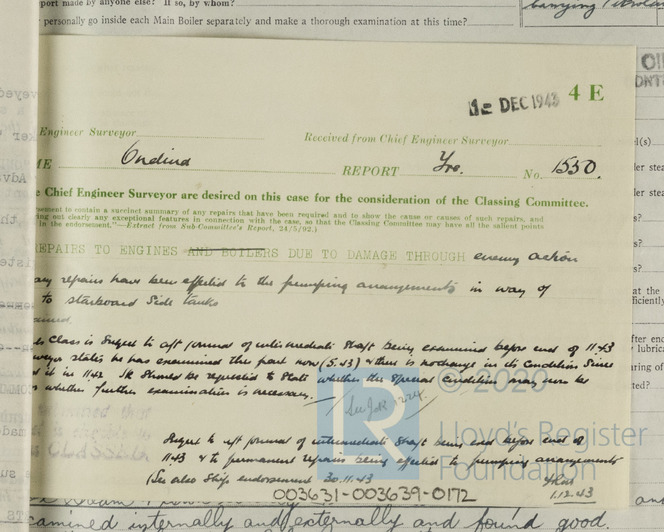 port made by anyone else? If so, by whom?
personally go inside each Main Boiler separately and make a thorough examination at this time?
carrying Petroleum
1 - DEC 1943 4 E
Engineer Surveyor
Received from Chief Engineer Surveyor
ME Ondina REPORT Fre. No. 1550.
e Chief Engineer Surveyor are desired on this case for the consideration of the Classing Committee.
sement to contain a succinct summary of any repairs that have been required and to show the cause or causes of such repairs, and
ring out clearly any exceptional features in connection with the case, so that the Classing Committee may have all the salient points
in the endorsement."—Extract from Sub-Committee's Report, 24/5/92.)
REPAIRS TO ENGINES AND BOILERS DUE TO DAMAGE THROUGH enemy action
ary repairs have been effected to the pumping arrangements in way of
to starboard side tanks
Class is subject to aft journal of intermediate shaft being examined before end of 11.43
veyor states he has examined this part now (5.43) & there is no change in its condition since
d it in 11.42 He should be requested to state whether the special condition may now be
or whether further examination is necessary.
Subject to aft journal of intermediate shaft being exd before end of
11.43 & to permanent repairs being effected to pumping arrangements
(See also Ship endorsement 30.11.43
1.12.43
© 2020
Lloyd's Register
Foundation
003631-003639-0172
amined internally and externally and found good.